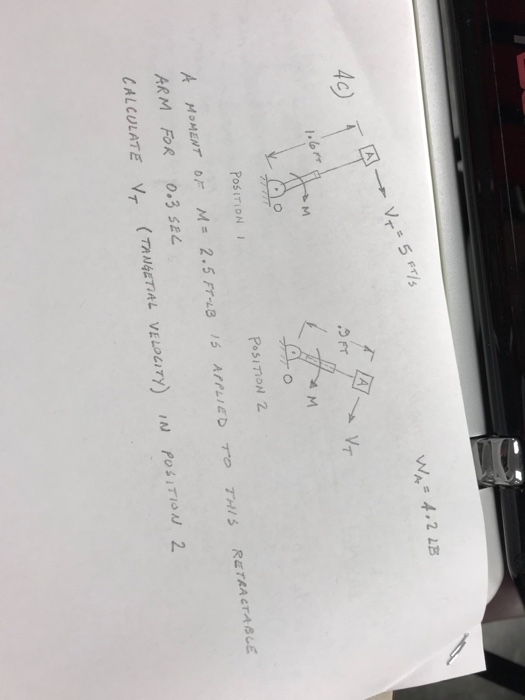 4c)
A
V_T = 5 FT/S
W_A = 4.2 LB
1.6 FT
M
O
POSITION 1
.9 FT
A
V_T
M
O
POSITION 2
A MOMENT OF M = 2.5 FT-LB IS APPLIED TO THIS RETRACTABLE
ARM FOR 0.3 SEC
CALCULATE V_T (TANGETIAL VELOCITY) IN POSITION 2